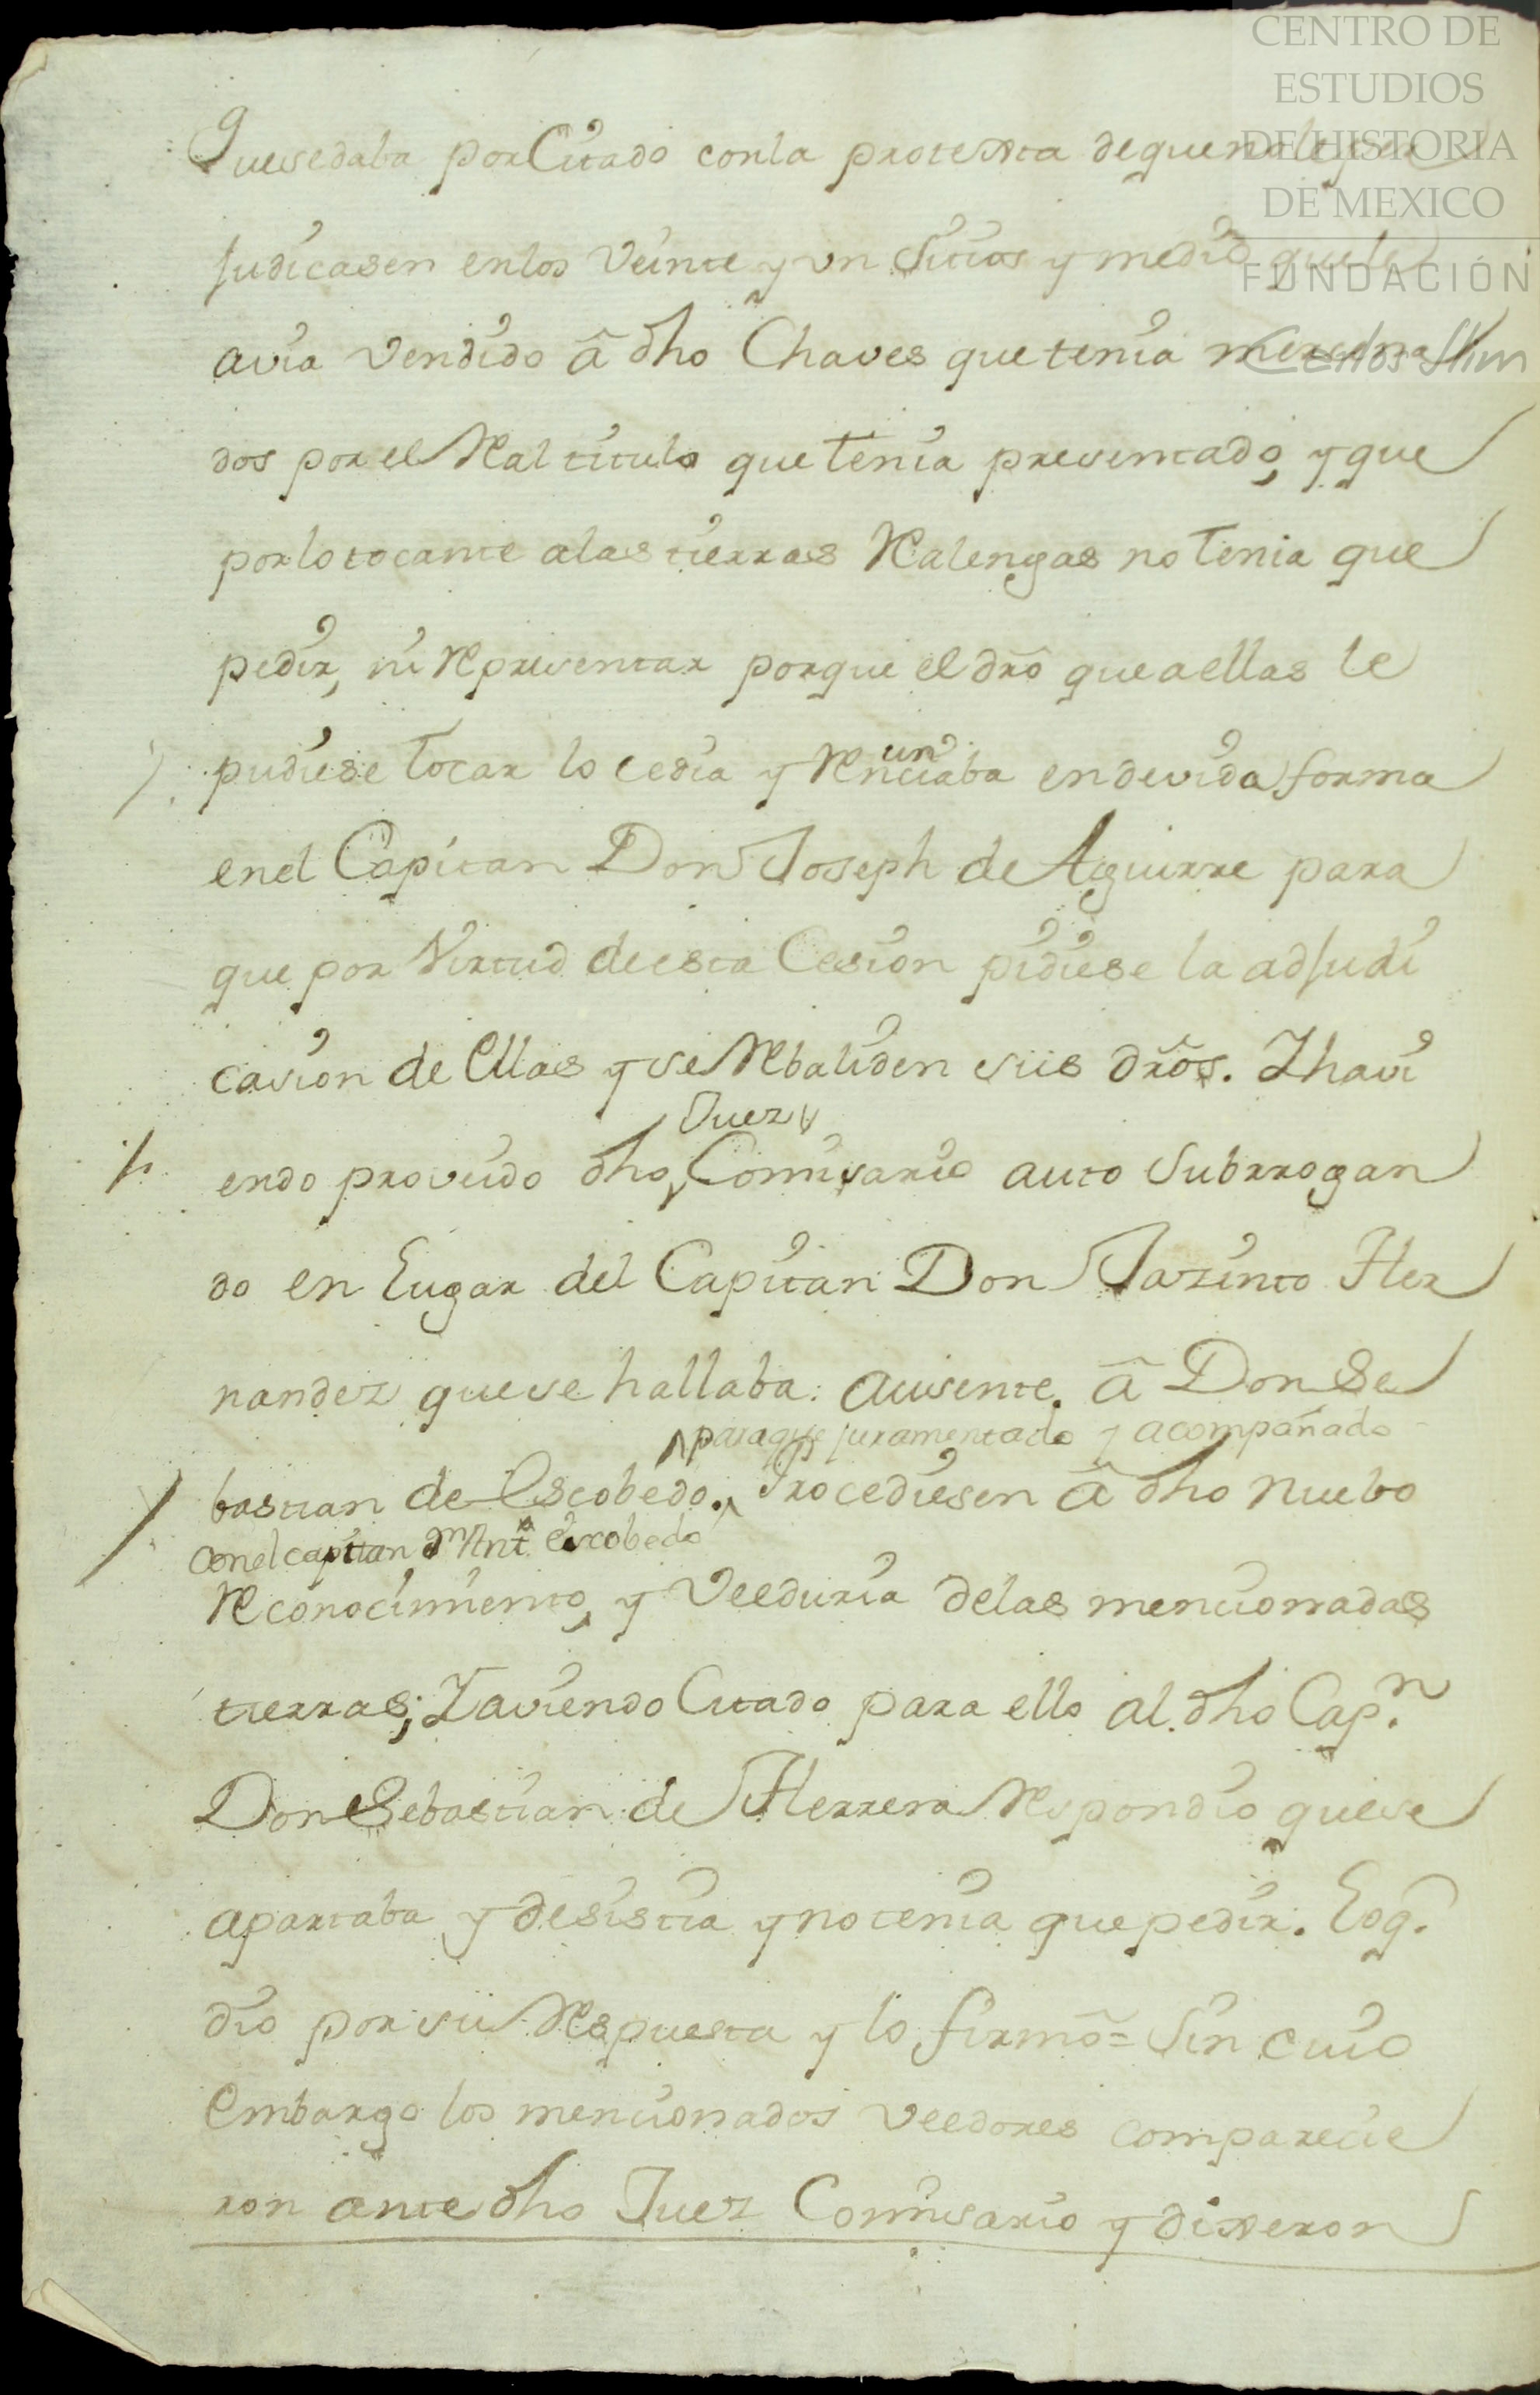 CENTRO DE
ESTUDIOS
DE HISTORIA
DE MEXICO
FUNDACIÓN
Carlos Slim
Quesedaba por Citado conla protexta dequenole per
judicasen enlos Veinte y un Sitios y medio quele
avia Vendido â dho Chaves que tenia mercena
dos por el Real titulo que tenia presentado, y que
porlo tocante alas tierras Realengas no tenia que
pedir, ni Representar porque el dr̃o que a ellas le
pudiese tocar lo cedia y Renunciaba endevida forma
enel Capitan Don Joseph de Aguirre para
que por Virtud de esta Cesion pidiese la adjudi
casion de Ellas y se Rebaliden sus dr̃os. Y havi
Juez
endo proveido dho Comisario auto Subrrogan
do en Lugar del Capitan Don Jazinto Her
nandez que se hallaba ausente. â Don Se
para que juramentado y acompañado
bastian de Escobedo. Procediesen â dho nuebo
con el capitan Dn Antt. Escobedo
Reconocimiento, y Veeduria delas mencionadas
tierras; Y aviendo Citado para ello al dho Capn.
Don Sebastian de Herrera Respondio que se
apartaba y desistia y no tenia que pedir. Esoq.
dio por su Respuesta y lo firmô = Sin cuio
Embargo los mencionados Veedores comparecie
ron ante dho Juez Comisario y dixeron